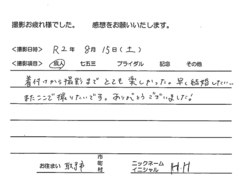 撮影お疲れ様でした。 感想をお願いいたします。
<撮影日時> R2年 8月 15日(土)
<撮影項目> 成人 七五三 ブライダル 記念 その他
着付けから撮影まで とても楽しかった。早く結婚したい…
またここで撮りたいです。ありがとうございました!
お住まい 市町村 ニックネーム イニシャル H.H